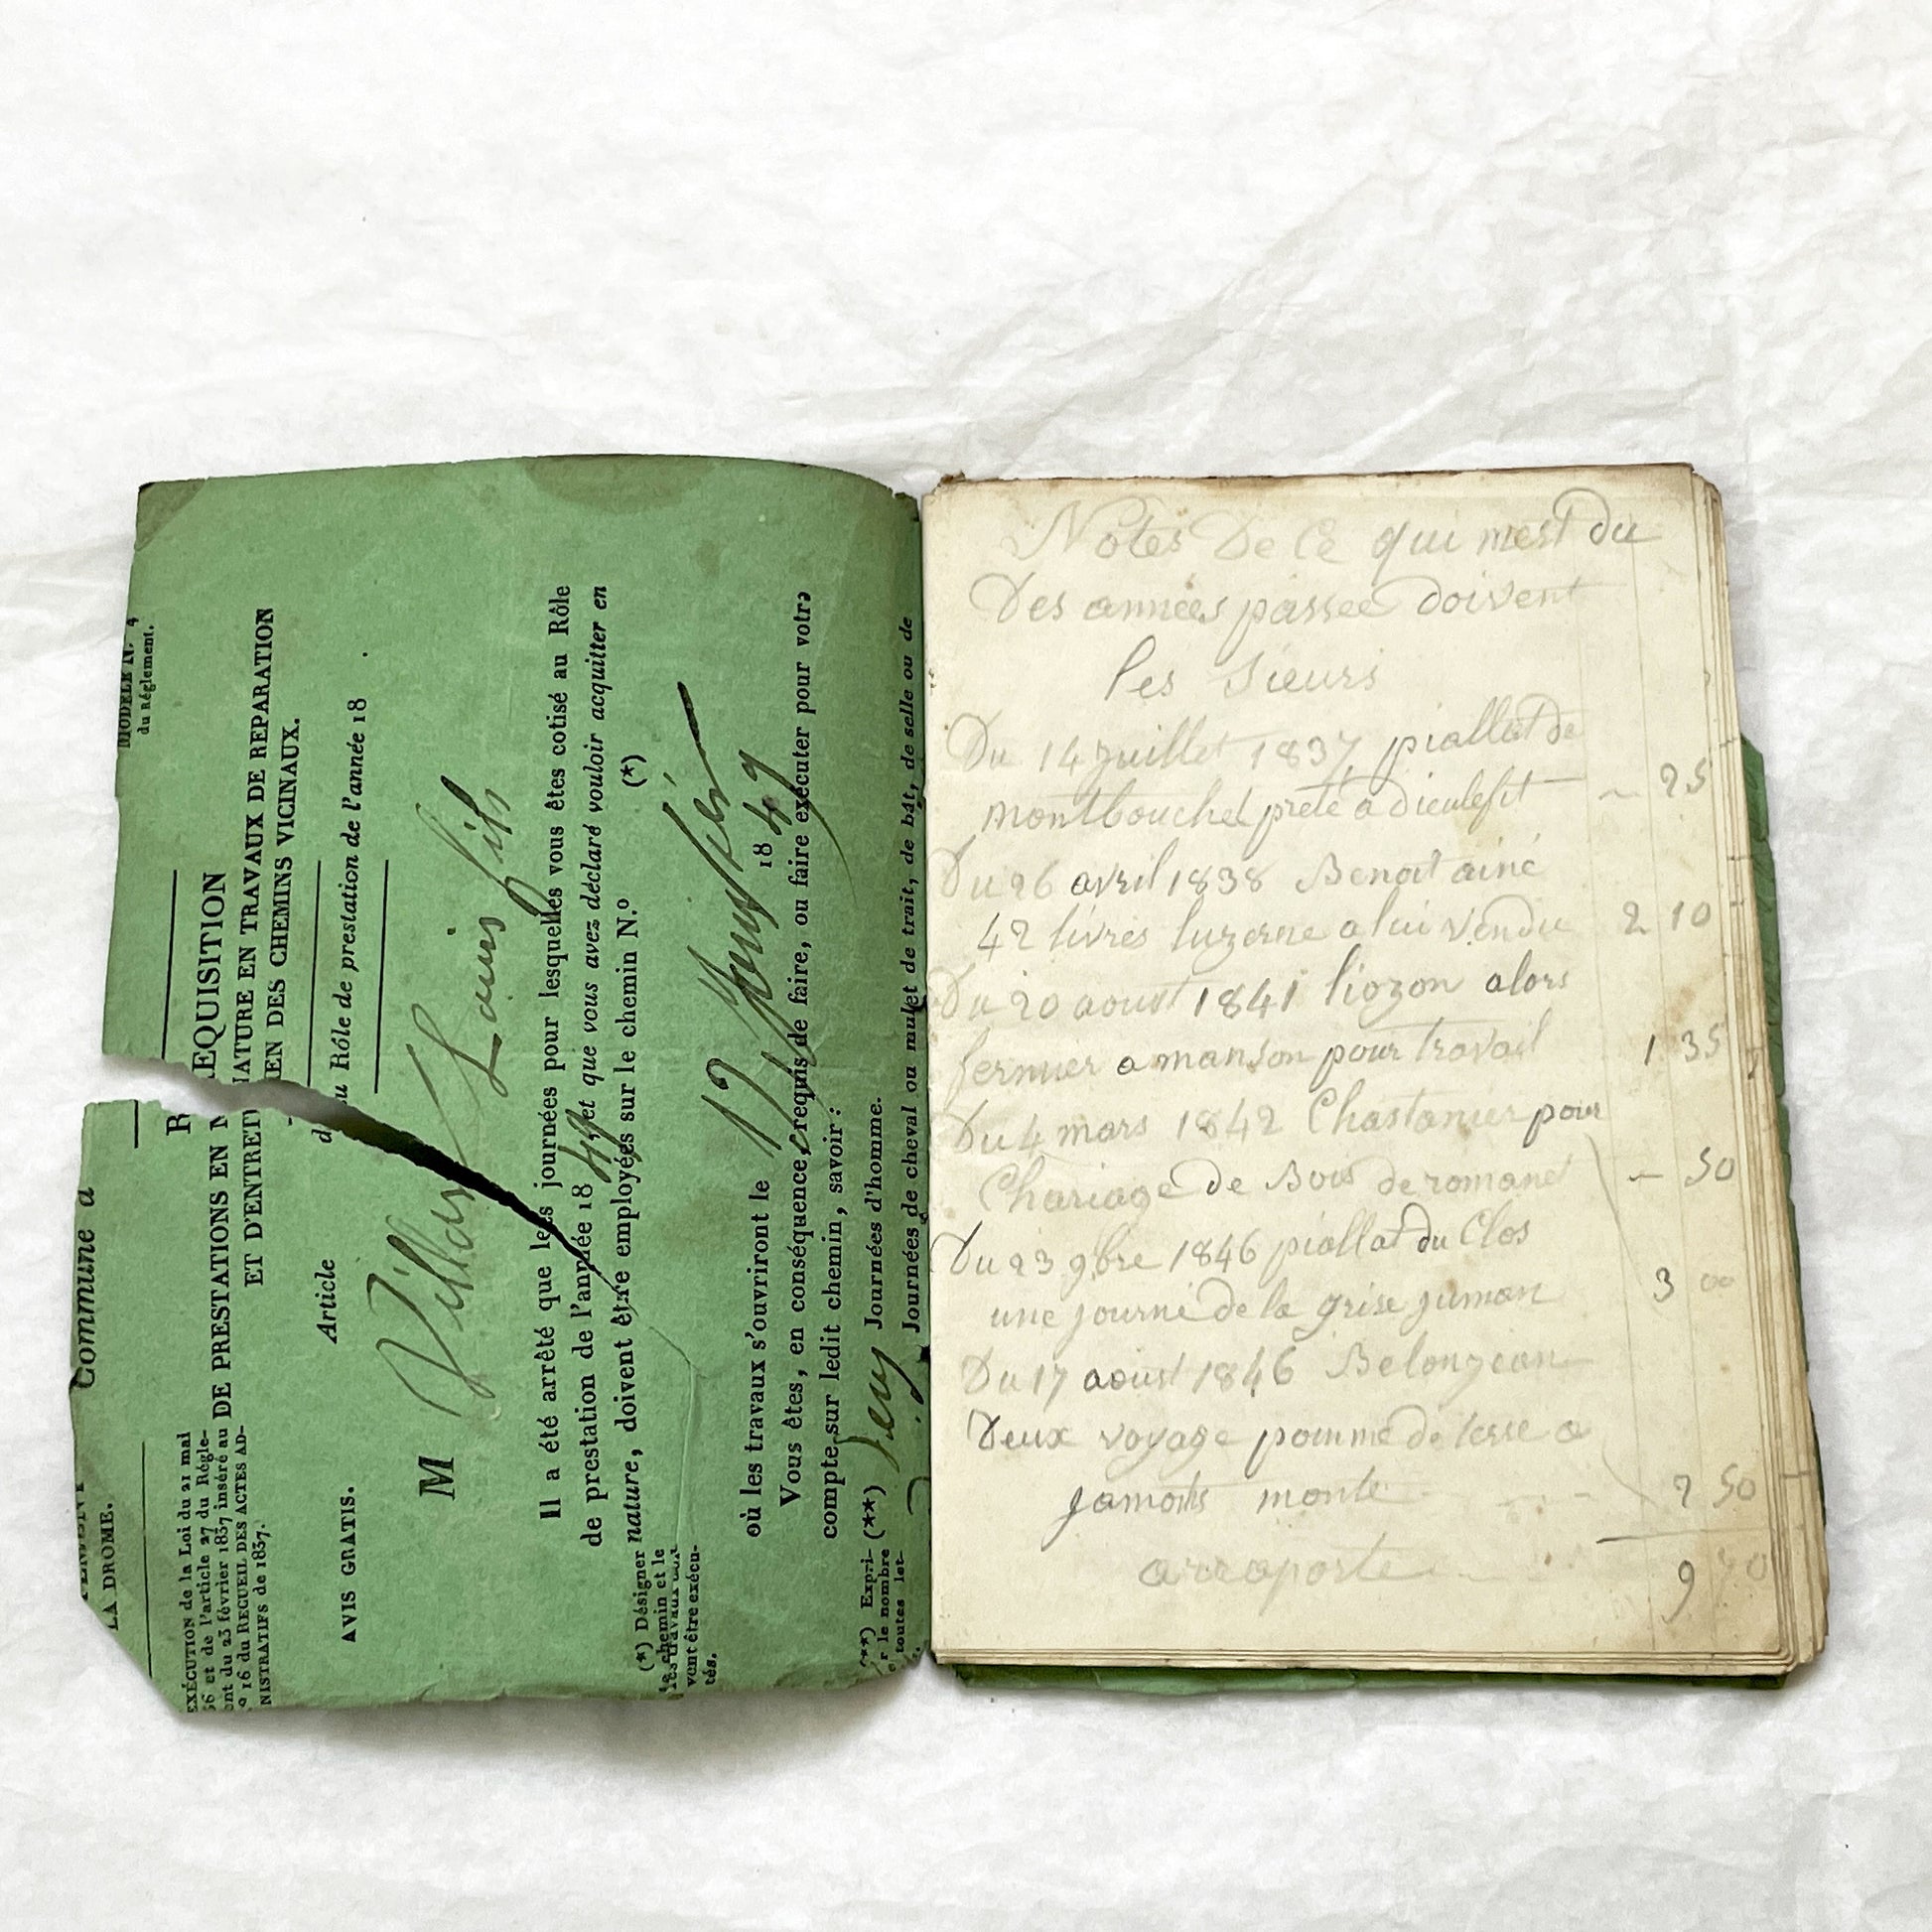 MODÈLE N.° 4
du Réglement.
Commune d
LA DROME.
EXÉCUTION de la Loi du 21 mai
36 et de l'article 27 du Régle-
ent du 23 février 1837 inséré au
° 16 du RECUEIL DES ACTES AD-
NISTRATIFS de 1837.
RÉQUISITION
DE PRESTATIONS EN NATURE EN TRAVAUX DE REPARATION
ET D'ENTRETIEN DES CHEMINS VICINAUX.
AVIS GRATIS.
Article du Rôle de prestation de l'année 18
M Louis fils
Il a été arrêté que les journées pour lesquelles vous êtes cotisé au Rôle
de prestation de l'année 18 49, et que vous avez déclaré vouloir acquitter en
nature, doivent être employées sur le chemin N.° (*)
(*) Désigner
le chemin et le
les travaux
vent être exécu-
tés.
où les travaux s'ouvriront le 12 18 49
Vous êtes, en conséquence, requis de faire, ou faire exécuter pour votre
compte sur ledit chemin, savoir :
(**) Expri-
r le nombre
toutes let-
(**) Journées d'homme.
Journées de cheval ou mulet de trait, de bât, de selle ou de
Notes De Ce qui mest du
Des années passee doivent
les Sieurs
Du 14 juillet 1837 piallat de
montbouchet prete a dieulefit ~ 25
Du 26 avril 1838 Benoit ainé
42 livres luzerne a lui vendu 2 10
Du 20 aoust 1841 liozon alors
fermier a manson pour travail 1 35
Du 4 mars 1842 Chastanier pour
Chariage de Bois de romane ~ 50
Du 23 9bre 1846 piallat du Clos
une journé de la grise juman 3 00
Du 17 aoust 1846 Belonjean
Deux voyage pomme de terre a
monte 2 50
arraporte 9 70